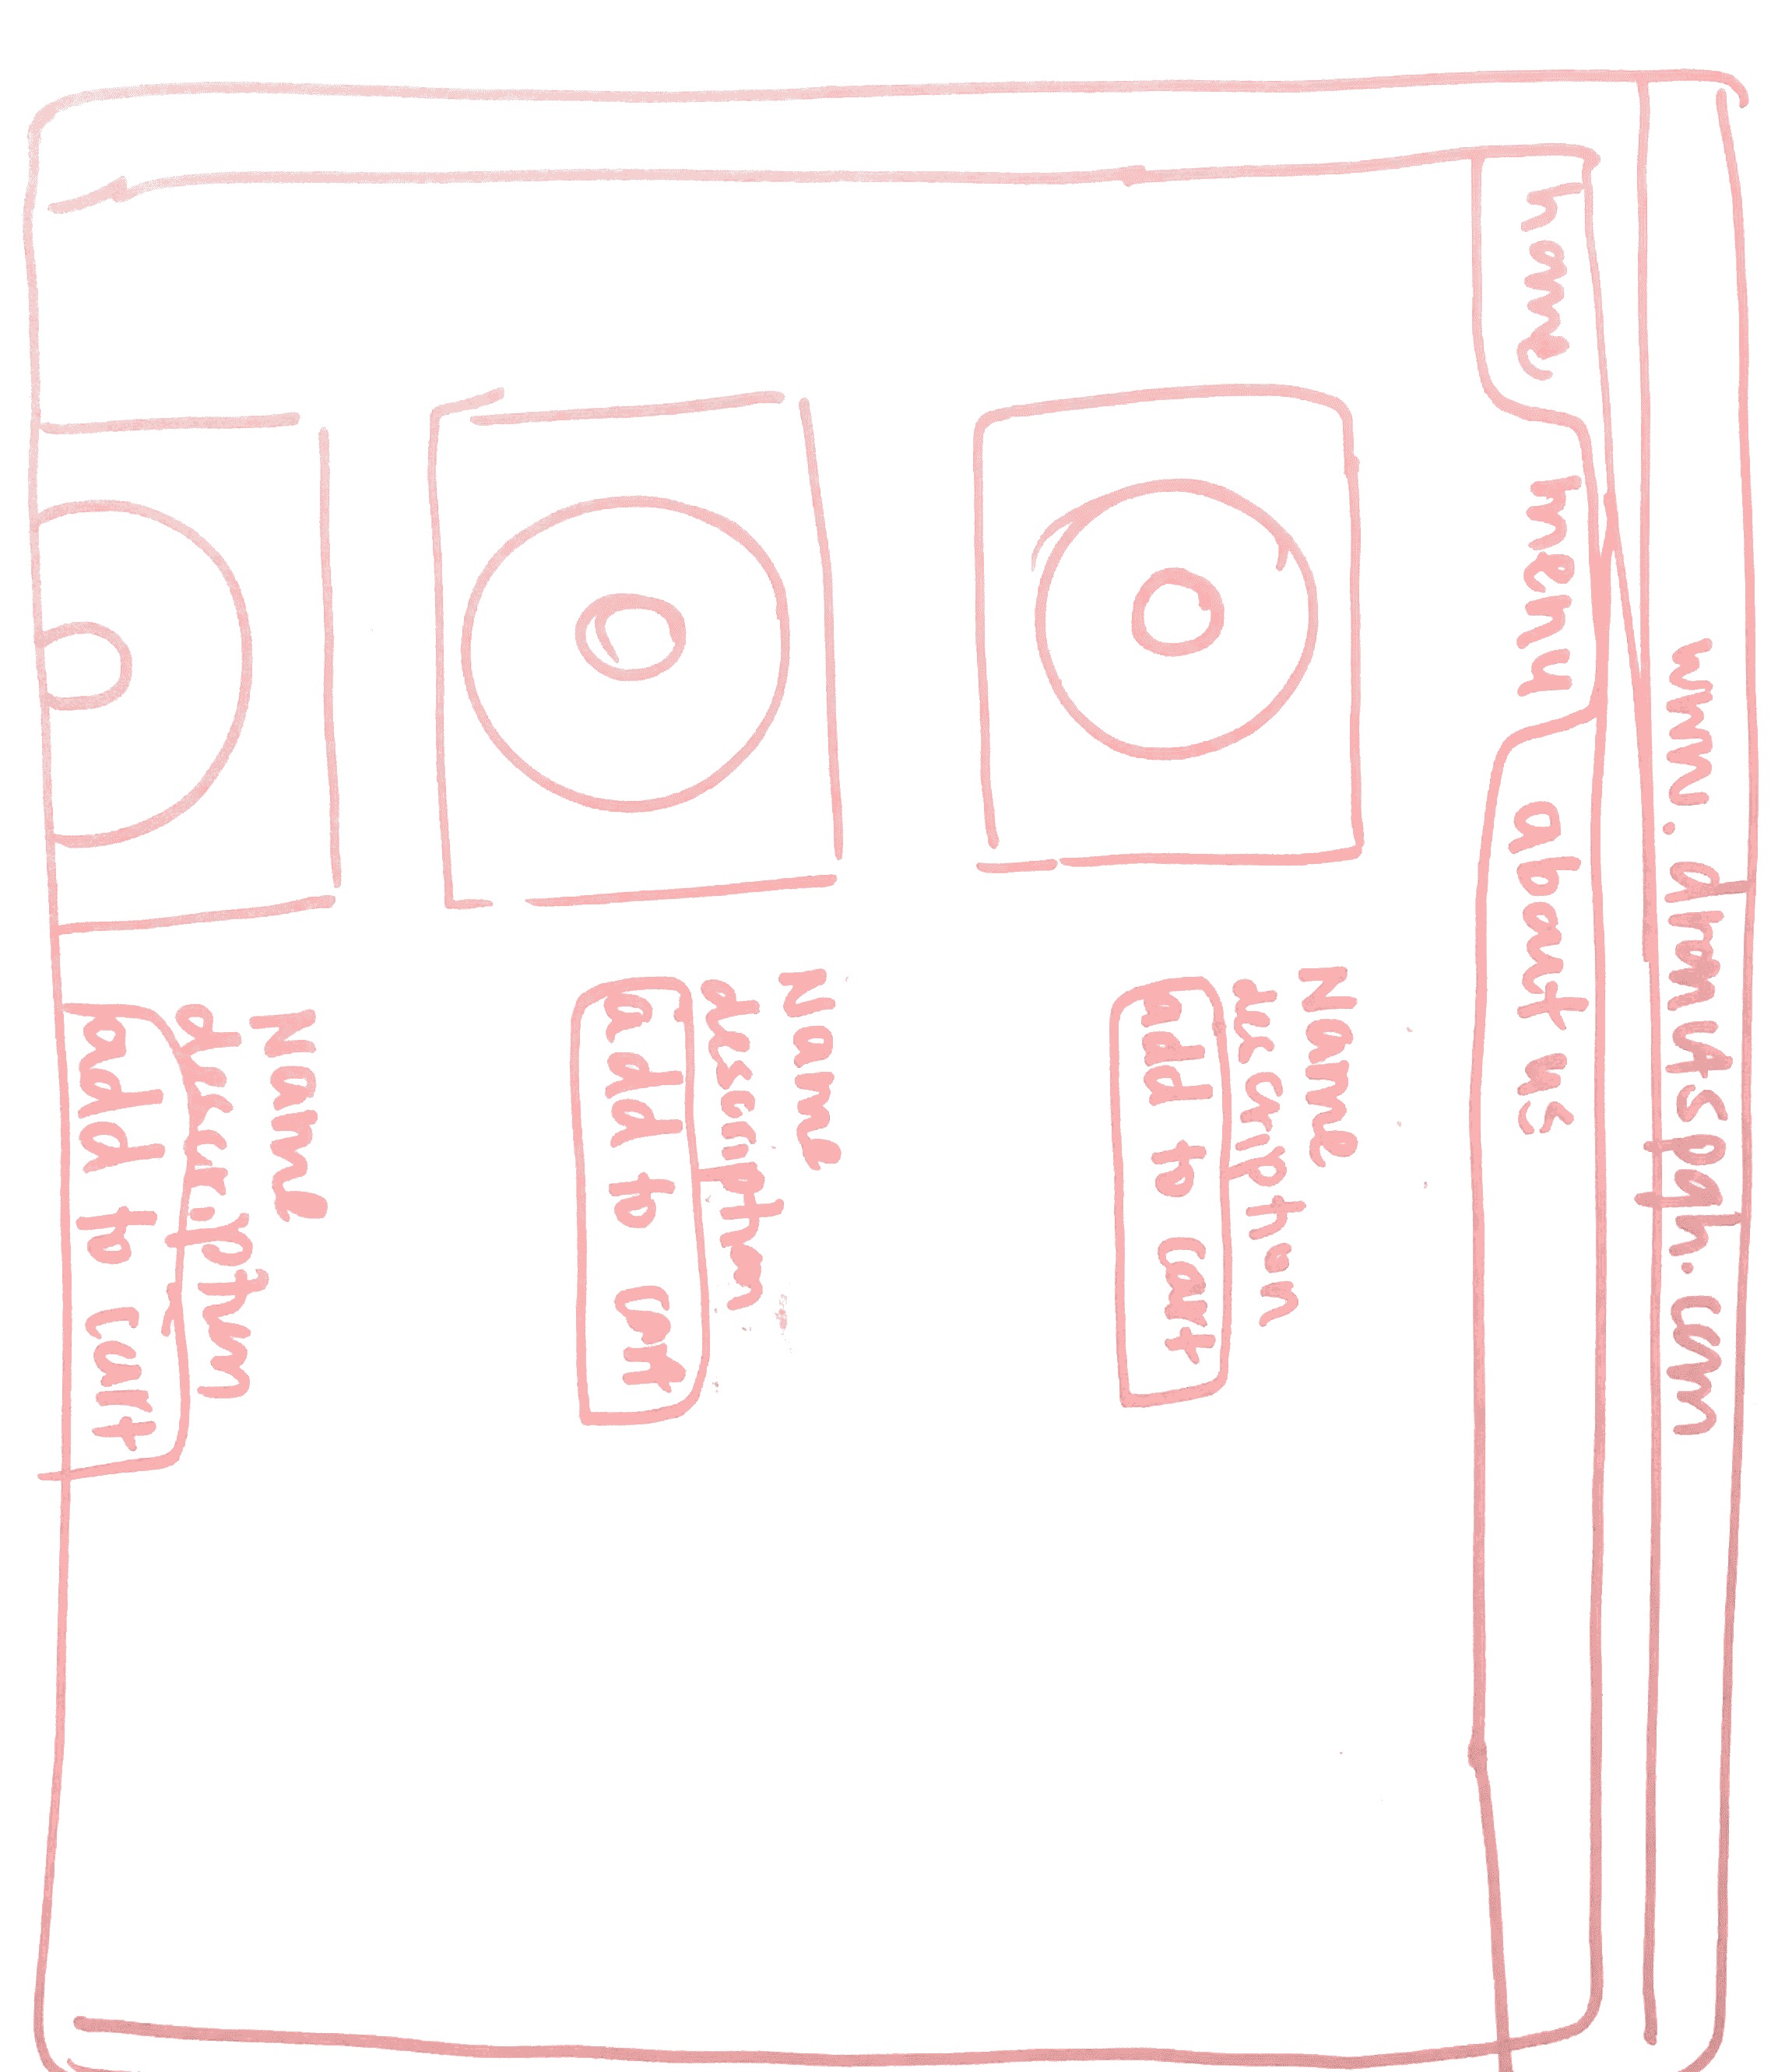 www.donutspgh.com
home menu about us
Name
description
add to cart
Name
description
add to cart
Name
description
add to cart